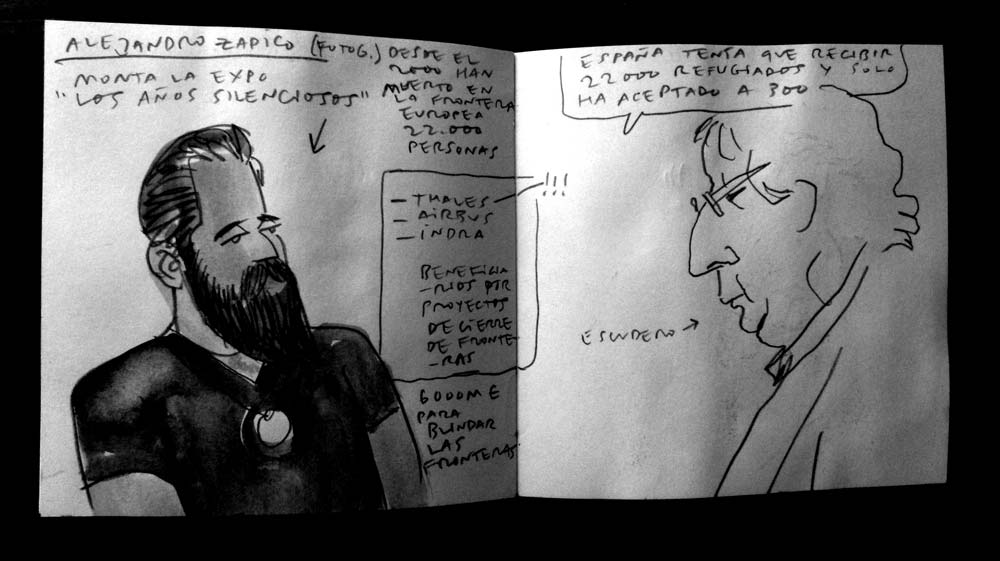 ALEJANDRO ZAPICO (FOTOG.)
MONTA LA EXPO
"LOS AÑOS SILENCIOSOS"
DESDE EL
2000 HAN
MUERTO EN
LA FRONTERA
EUROPEA
22.000
PERSONAS
— THALES
— AIRBUS
— INDRA
!!!
BENEFICIA
-RIOS POR
PROYECTOS
DE CIERRE
DE FRONTE
-RAS
6000M €
PARA
BLINDAR
LAS
FRONTERAS
ESPAÑA TENÍA QUE RECIBIR
22000 REFUGIADOS Y SOLO
HA ACEPTADO A 300
ESCUDERO